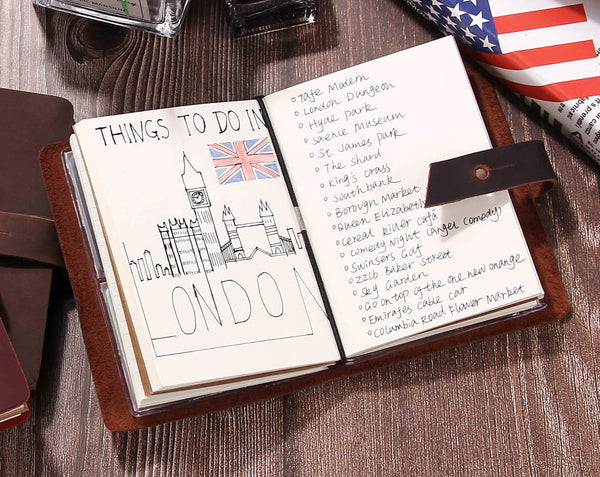 THINGS TO DO IN
LONDON
Tate Modern
London Dungeon
Hyde park
Science Museum
St. James park
The Shard
King's Cross
Southbank
Borough Market
Queen Elizabeth
cereal killer café
comedy Night (Angel Comedy)
Swinsers Gaf
221b Baker Street
Sky Garden
Go on top of the one new change
Emirates Cable Car
Columbia Road Flower Market